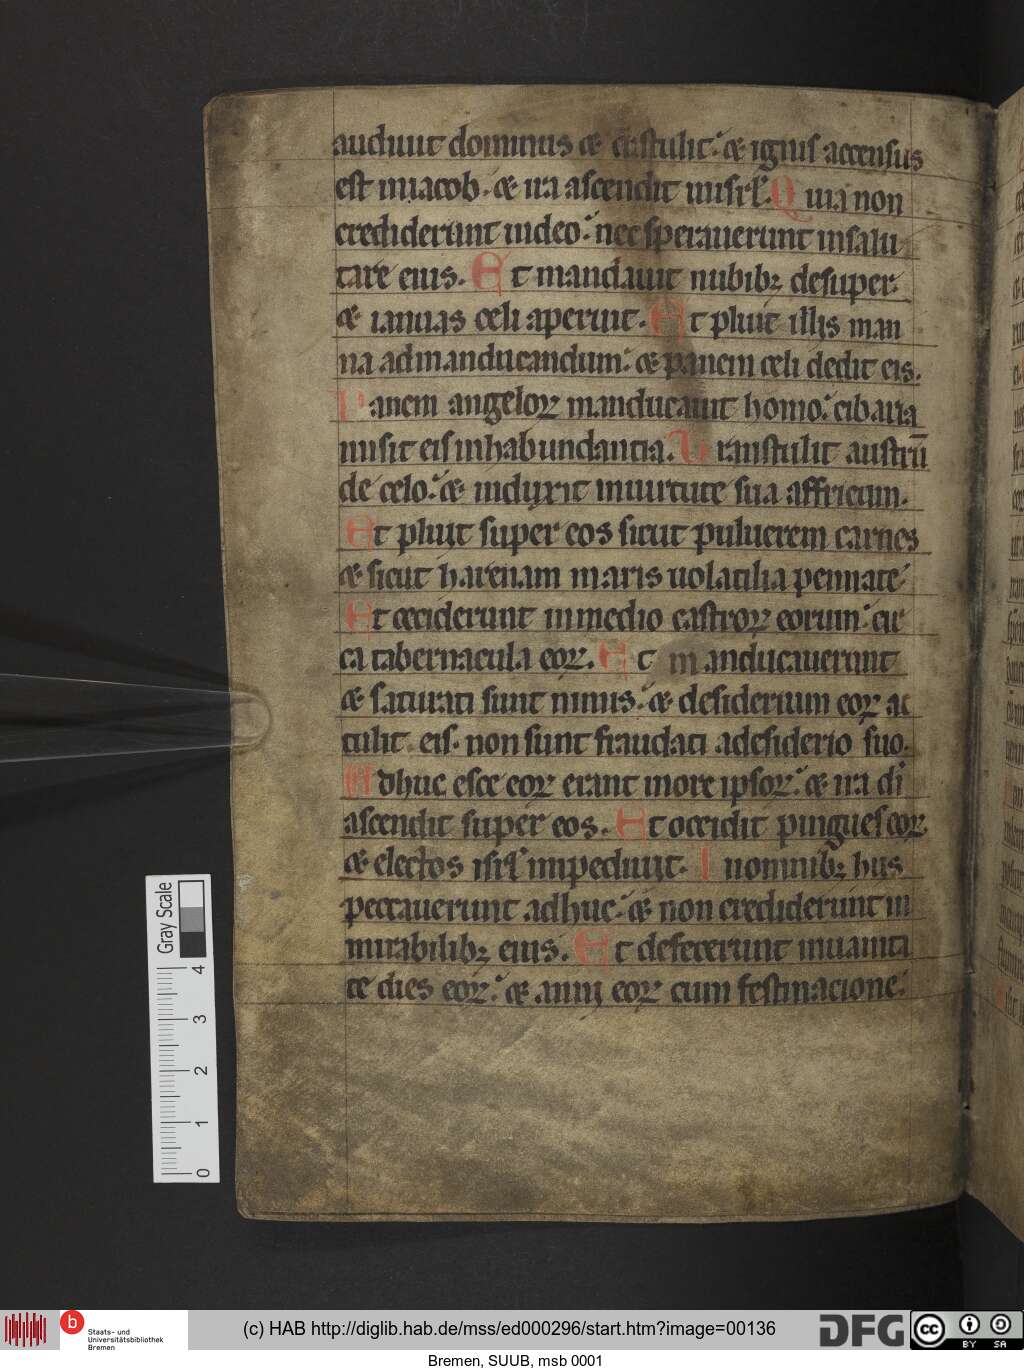 audiuit dominus & distulit: & ignis accensus
est iniacob. & ira ascendit inisrl. Quia non
crediderunt indeo: nec sperauerunt insalu
tare eius. Et mandauit nubibꝫ desuper:
& ianuas celi aperuit. Et pluit illis man
na admanducandum: & panem celi dedit eis.
Panem angeloꝝ manducauit homo: cibaria
misit eis inhabundantia. Transtulit austrū
de celo: & induxit inuirtute sua affricum.
Et pluit super eos sicut puluerem carnes
& sicut harenam maris uolatilia pennata:
Et ceciderunt inmedio castroꝝ eorum: cir
ca tabernacula eoꝝ. Et manducauerunt
& saturati sunt nimis: & desiderium eoꝝ at
tulit eis. non sunt fraudati adesiderio suo.
Adhuc esce eoꝝ erant inore ipsoꝝ: & ira di
ascendit super eos. Et occidit pingues eoꝝ
& electos isrl impediuit. Inomnibꝫ hiis
peccauerunt adhuc: & non crediderunt in
mirabilibꝫ eius. Et defecerunt inuanita
te dies eoꝝ: & anni eoꝝ cum festinacione:
Gray Scale
4
3
2
1
0
b
Staats- und
Universitätsbibliothek
Bremen
(c) HAB http://diglib.hab.de/mss/ed000296/start.htm?image=00136
DFG
cc
BY SA
Bremen, SUUB, msb 0001